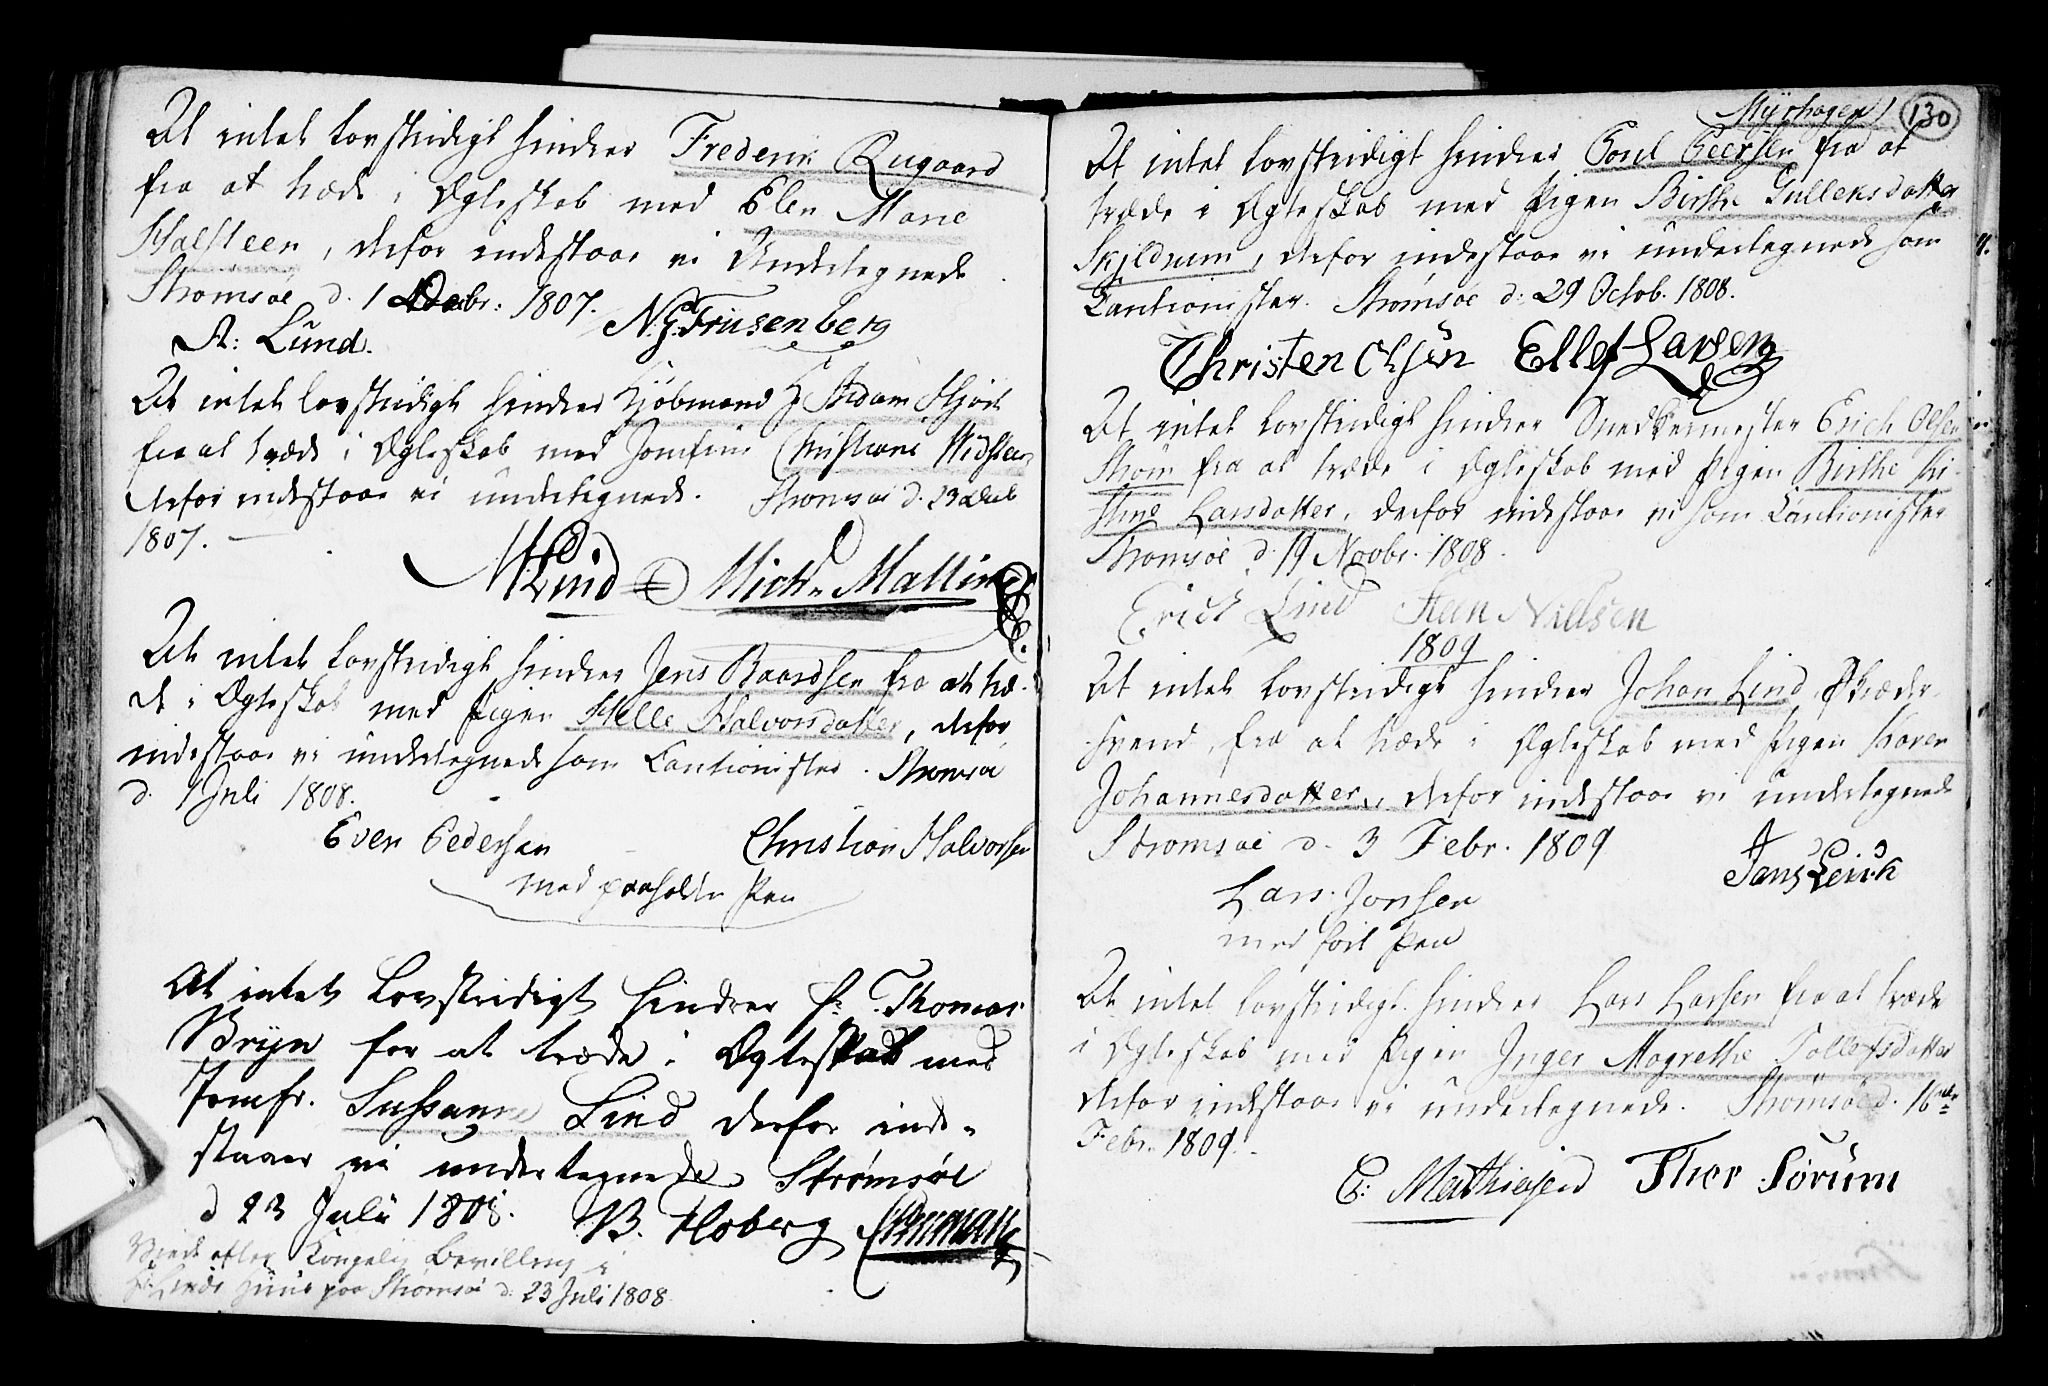 At intet Lovstridigt hindrer Frederik Rugaard
fra at træde i Ægteskab med Elen Marie
Halsteen, derfor indestaae vi Undertegnede.
Strømsøe d. 1 Decbr: 1807. N. G. Trusenberg
A: Lund.
At intet lovstridigt hindrer Kjøbmand H Adam Hjort
fra at træde i Ægteskab med Jomfrue Christiane Widsteen
derfor indestaae vi undertegnede. Strømsøe d. 23 Decb
1807.
Lind Mich. Malling
At intet Lovstridigt hindrer Jens Baardsen fra at træ-
de i Ægteskab med Pigen Helle Halvorsdatter, derfor
indestaae vi undertegnede som Cautionister. Strømsøe
d. 1 Juli 1808.
Even Pedersen Christian Halvorsen
med paaholden Pen
At intet Lovstridigt hindrer Hr. Thomas
Bryn for at træde i Ægteskab med
Jomfr. Sussanne Lind derfor inde-
staaer vi undertegnede Strømsøe
d 23 Julii 1808. B. Hoberg
Viede efter Kongelig Bevilling i
Hr. Linds Huus paa Strømsøe d. 23 Juli 1808
Myrhagen 130
At intet Lovstridigt hindrer Poul Peersen fra at
træde i Ægteskab med Pigen Birthe Gulleksdatter
Skjeldrum, derfor indestaae vi undertegnede som
Cautionister. Strømsøe d: 29 Octob. 1808.
Christen Olsen Ellef Larsen
At intet Lovstridigt hindrer Snedkermester Erich Olsen
Strøm fra at træde i Ægteskab med Pigen Birthe Ki-
stine Larsdatter, derfor indestaae vi som Cautionister
Strømsøe d. 19 Novbr. 1808.
Erich Lind Steen Nielsen
1809
At intet Lovstridigt hindrer Johan Lind, Skræder-
svend, fra at træde i Ægteskab med Pigen Karen
Johannesdatter, derfor indestaae vi undertegnede
Strømsøe d. 3 Febr. 1809
Jans Leick
Lars Jonsen
med ført Pen
At intet Lovstridigt hindrer Lars Larsen fra at træde
i Ægteskab med Pigen Inger Magrethe Tollefsdatter
derfor indestaae vi undertegnede. Strømsøe d. 16de
Febr. 1809.
C: Mathiesen Thor Sørum